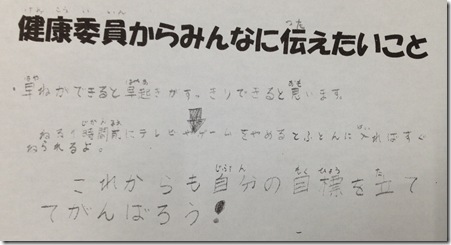 健康委員からみんなに伝えたいこと
・早ねができると早起きがすっきりできると思います。
ねる1時間前にテレビやゲームをやめるとふとんに入ればすぐ
ねられるよ。
これからも自分の目標を立て
てがんばろう!